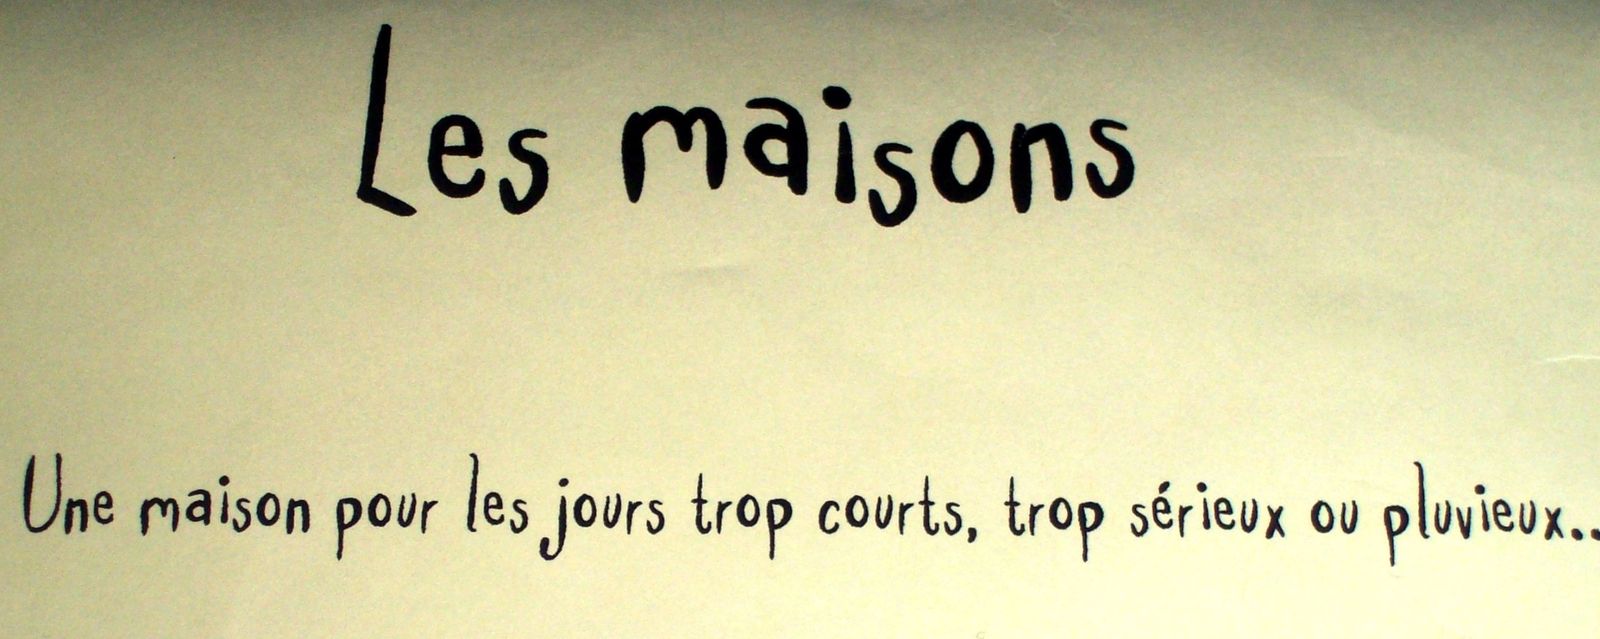 Les maisons
Une maison pour les jours trop courts, trop sérieux ou pluvieux..